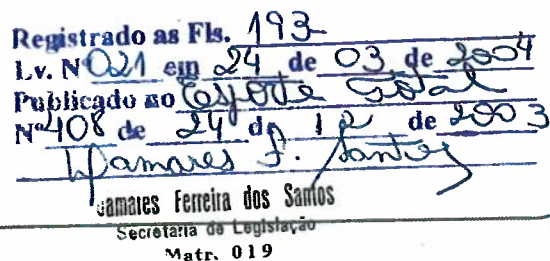 Registrado as Fls. 193
Lv. Nº 021 em 24 de 03 de 2004
Publicado no Esporte Total
Nº 408 de 24 de 12 de 2003
Damares F. Santos
Damares Ferreira dos Santos
Secretaria de Legislação
Matr. 019